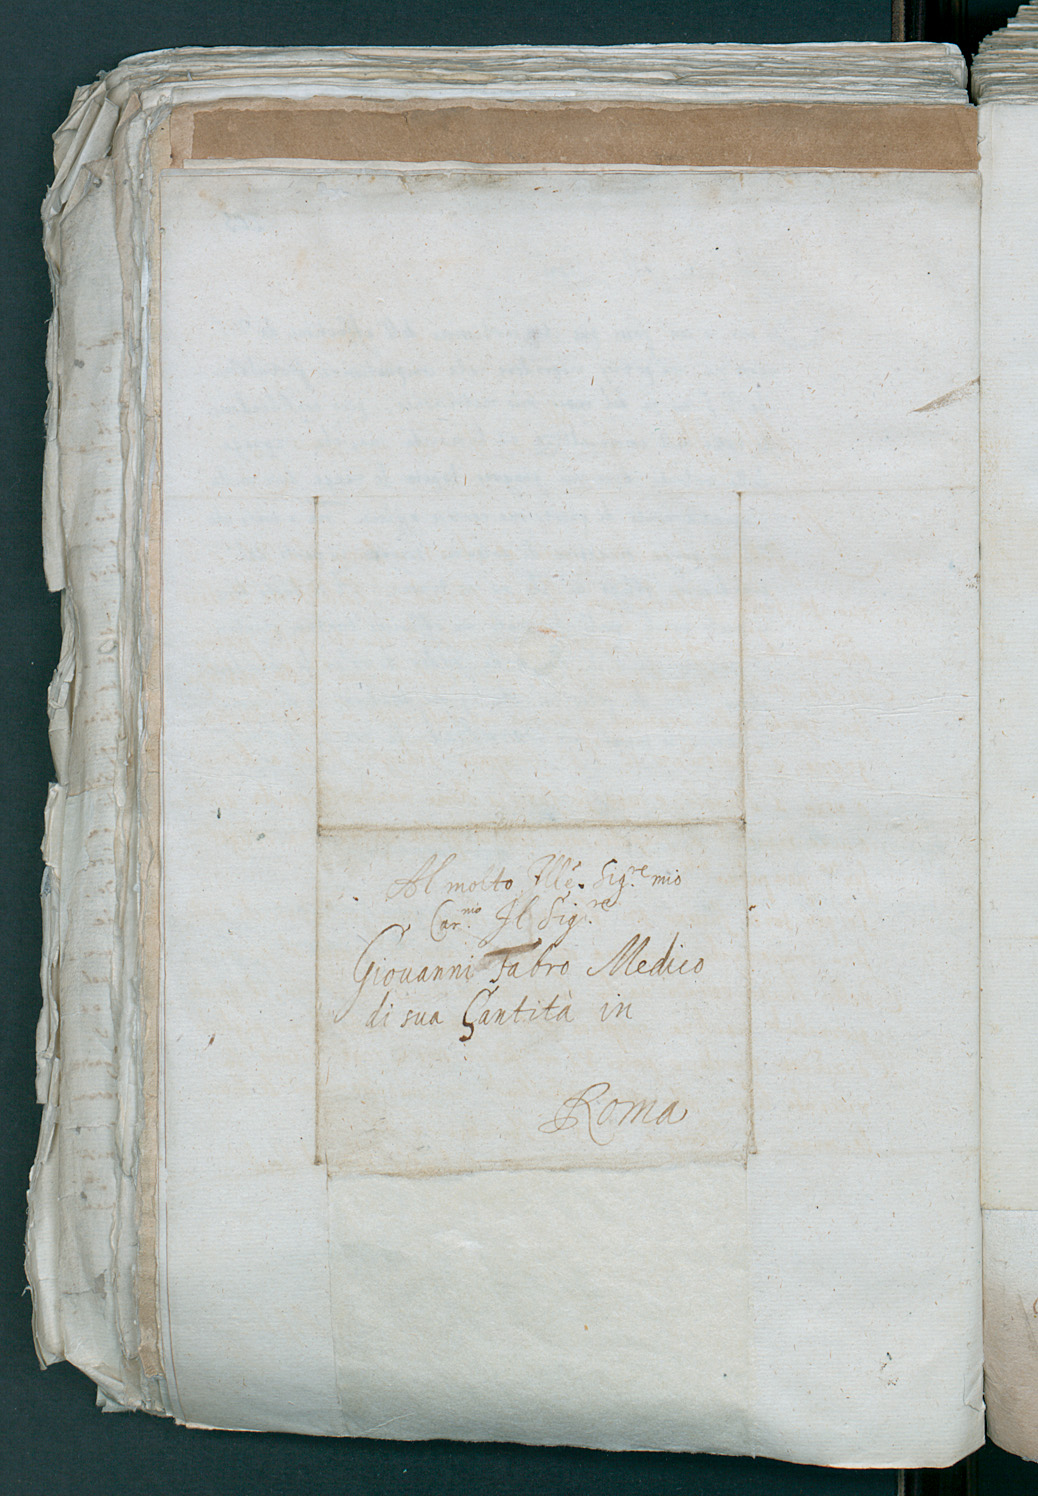 Al molto Ill.e Sig.re mio
Car.mo Il Sig.re
Giouanni Fabro Medico
di sua Santità in
Roma